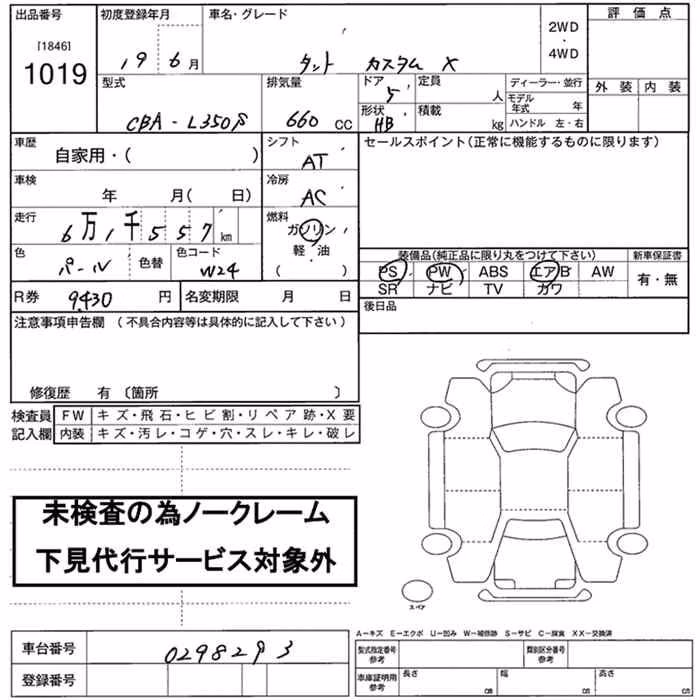 出品番号 初度登録年月 車名・グレード 2WD・4WD 評価点
[1846]
1019 19 6月 タント カスタム X
型式 排気量 ドア 5 定員 人 ディーラー・並行 外装 内装
CBA-L350S 660 CC 形状 HB 積載 kg モデル年式 年
ハンドル 左・右
車歴 自家用・( ) シフト AT セールスポイント(正常に機能するものに限ります)
車検 年 月( 日) 冷房 AC
走行 6万1千557km 燃料 ガソリン
軽油
( )
色 パール 色替 色コード W24
装備品(純正品に限り丸をつけて下さい) 新車保証書
PS PW ABS エアB AW 有・無
SR ナビ TV カワ
R券 9430円 名変期限 月 日 後日品
注意事項申告欄 (不具合内容等は具体的に記入して下さい)
修復歴 有〔箇所 〕
検査員 FW キズ・飛石・ヒビ割・リペア跡・X要
記入欄 内装 キズ・汚レ・コゲ・穴・スレ・キレ・破レ
未検査の為ノークレーム
下見代行サービス対象外
スペア
A-キズ E-エクボ U-凹み W-補修跡 S-サビ C-腐食 XX-交換済
車台番号 0298293 型式指定番号 参考 類別区分番号 参考
登録番号 車庫証明用 参考 長さ cm 幅 cm 高さ cm